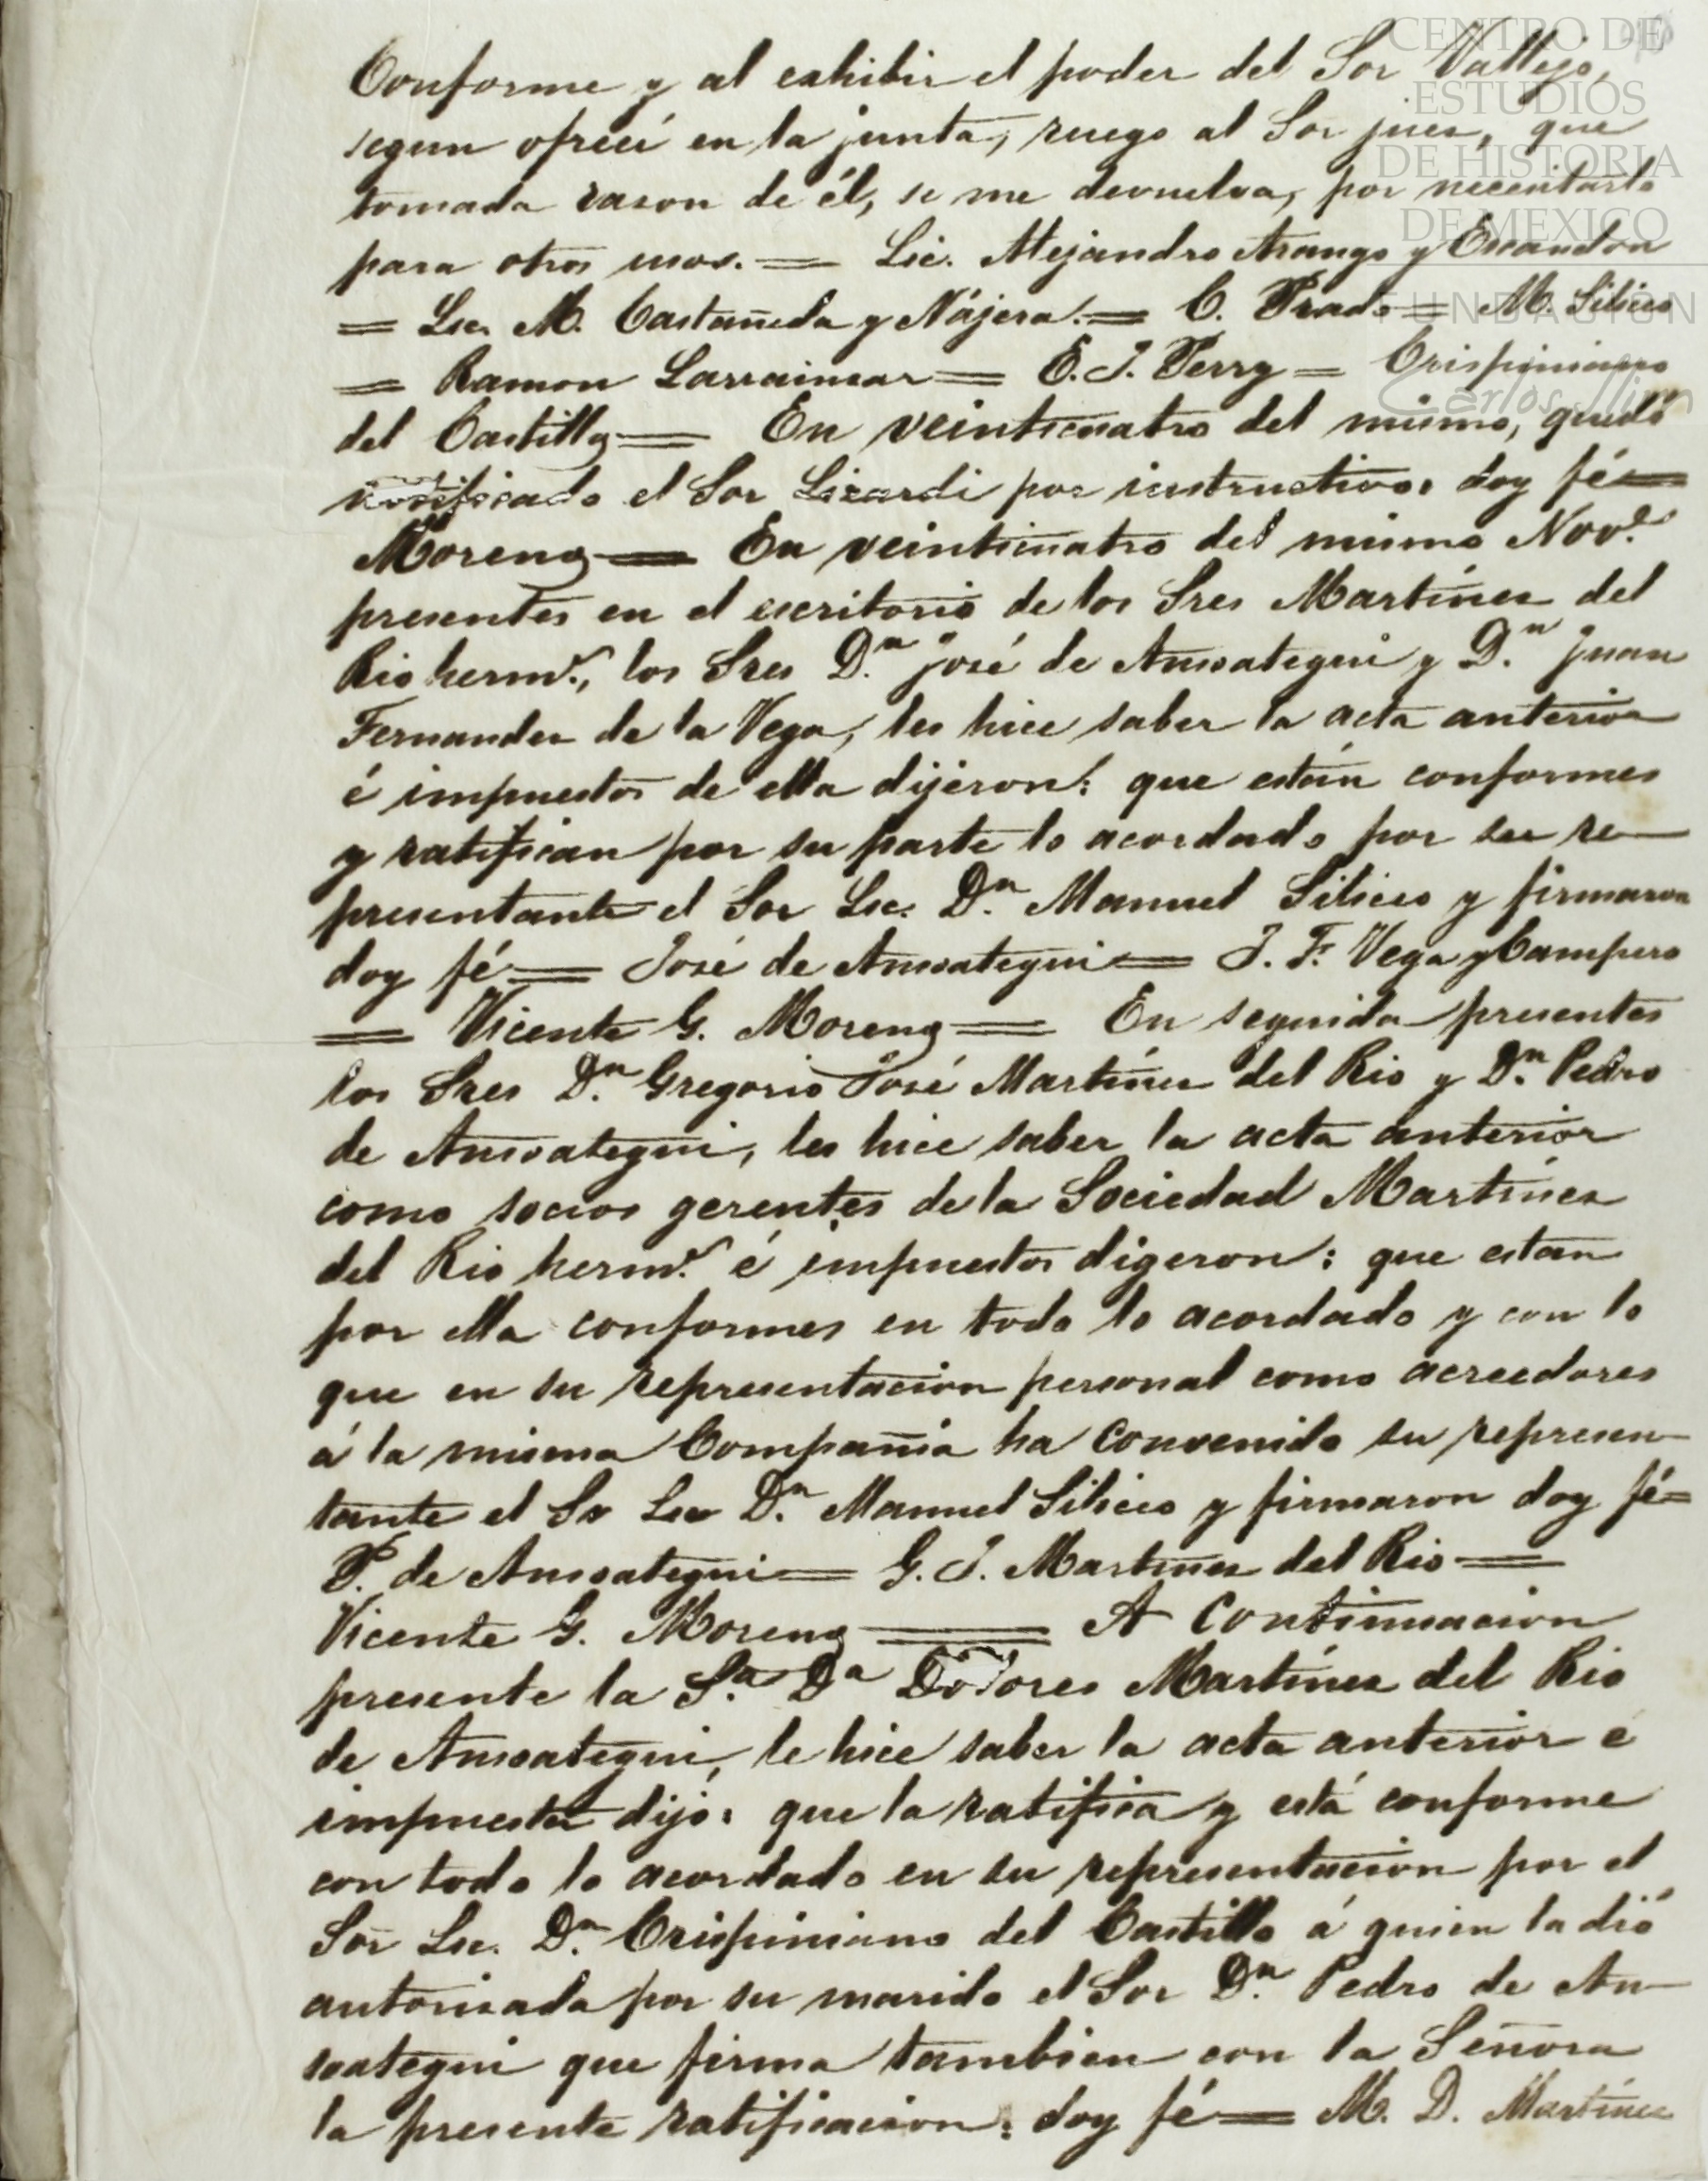 CENTRO DE
ESTUDIOS
DE HISTORIA
DE MEXICO
FUNDACIÓN
Carlos Slim
Conforme y al exhibir el poder del Sor Vallejo,
segun ofrecí en la junta, ruego al Sor juez, que
tomada razon de él, se me devuelva, por necesitarlo
para otros usos. = Lic. Alejandro Arango y Escandon
= Lic. M. Castañeda y Nájera. = C. Prado = M. Siliceo
= Ramon Larrainzar = E. J. Perry = Crispiniano
del Castillo = En veinticuatro del mismo, quedó
notificado el Sor Lizardi por instructivo, doy fé =
Moreno = En veinticuatro del mismo Nov.e
presentes en el escritorio de los Sres Martínez del
Rio herm.s, los Sres D.n José de Ansoategui y D.n Juan
Fernandez de la Vega, les hice saber la acta anterior
é impuestos de ella dijeron: que están conformes
y ratifican por su parte lo acordado por su re
presentante el Sor Lic. D.n Manuel Siliceo y firmaron
doy fé = José de Ansoategui = J. F. Vega y Campero
= Vicente G. Moreno = En seguida presentes
los Sres D.n Gregorio José Martínez del Rio y D.n Pedro
de Ansoategui, les hice saber la acta anterior
como socios gerentes de la Sociedad Martínez
del Rio herm.s é impuestos digeron: que estan
por ella conformes en todo lo acordado y con lo
que en su representacion personal como acreedores
á la misma Compañia ha convenido su represen
tante el Sr Lic D.n Manuel Siliceo y firmaron doy fé =
P. de Ansoategui = G. J. Martinez del Rio =
Vicente G. Moreno = A continuacion
presente la S.a D.a Dolores Martínez del Rio
de Ansoategui, le hice saber la acta anterior é
impuesta dijo: que la ratifica y está conforme
con todo lo acordado en su representacion por el
Sor Lic. D.n Crispiniano del Castillo á quien la dió
autorizada por su marido el Sor D.n Pedro de An
soategui que firma tambien con la Señora
la presente ratificacion: doy fé = M. D. Martínez